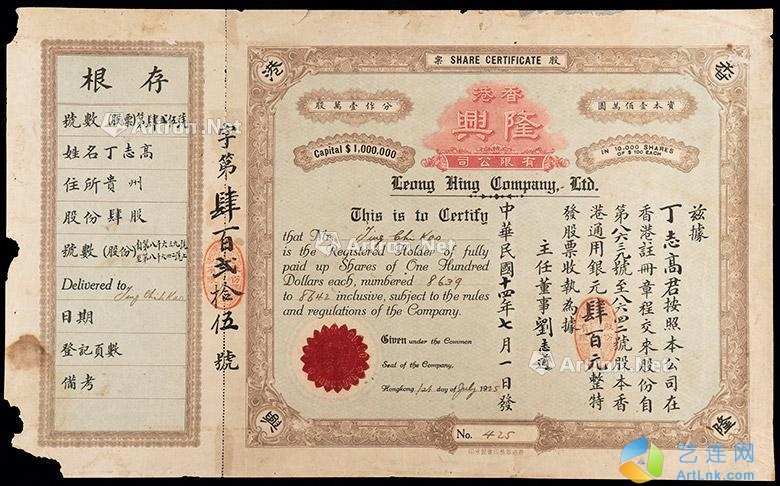 存根
號數(股票)第肆弍伍號
姓名丁志高
住所貴州
股份肆股
號數(股份)
Delivered to
Ting Chih Kao
日期
登記頁數
備考
字第肆百弍拾伍號
港
香
興
隆
股 SHARE CERTIFICATE 票
資本壹佰萬圓
分作壹萬股
香港
隆興
有限公司
Capital $1,000,000
IN 10,000 SHARES
OF $100 EACH
Leong Hing Company, Ltd.
This is to Certify
that Mr. Ting Chi Kao
is the Registered Holder of fully
paid up Shares of One Hundred
Dollars each, numbered 8639
to 8642 inclusive, subject to the rules
and regulations of the Company.
Given under the Common
Seal of the Company.
Hongkong, 1st day of July 1925
茲據
丁志高君按照本公司在
香港註冊章程交來股份自
第八六三九號至八六四二號股本香
港通用銀元肆百元整特
發股票收執為據
主任董事 劉志道
中華民國十四年七月一日發
No. 425
Artron.Net
Artron.Net
Artron.Net
Artron.Net
艺连网
ArtLnk.com